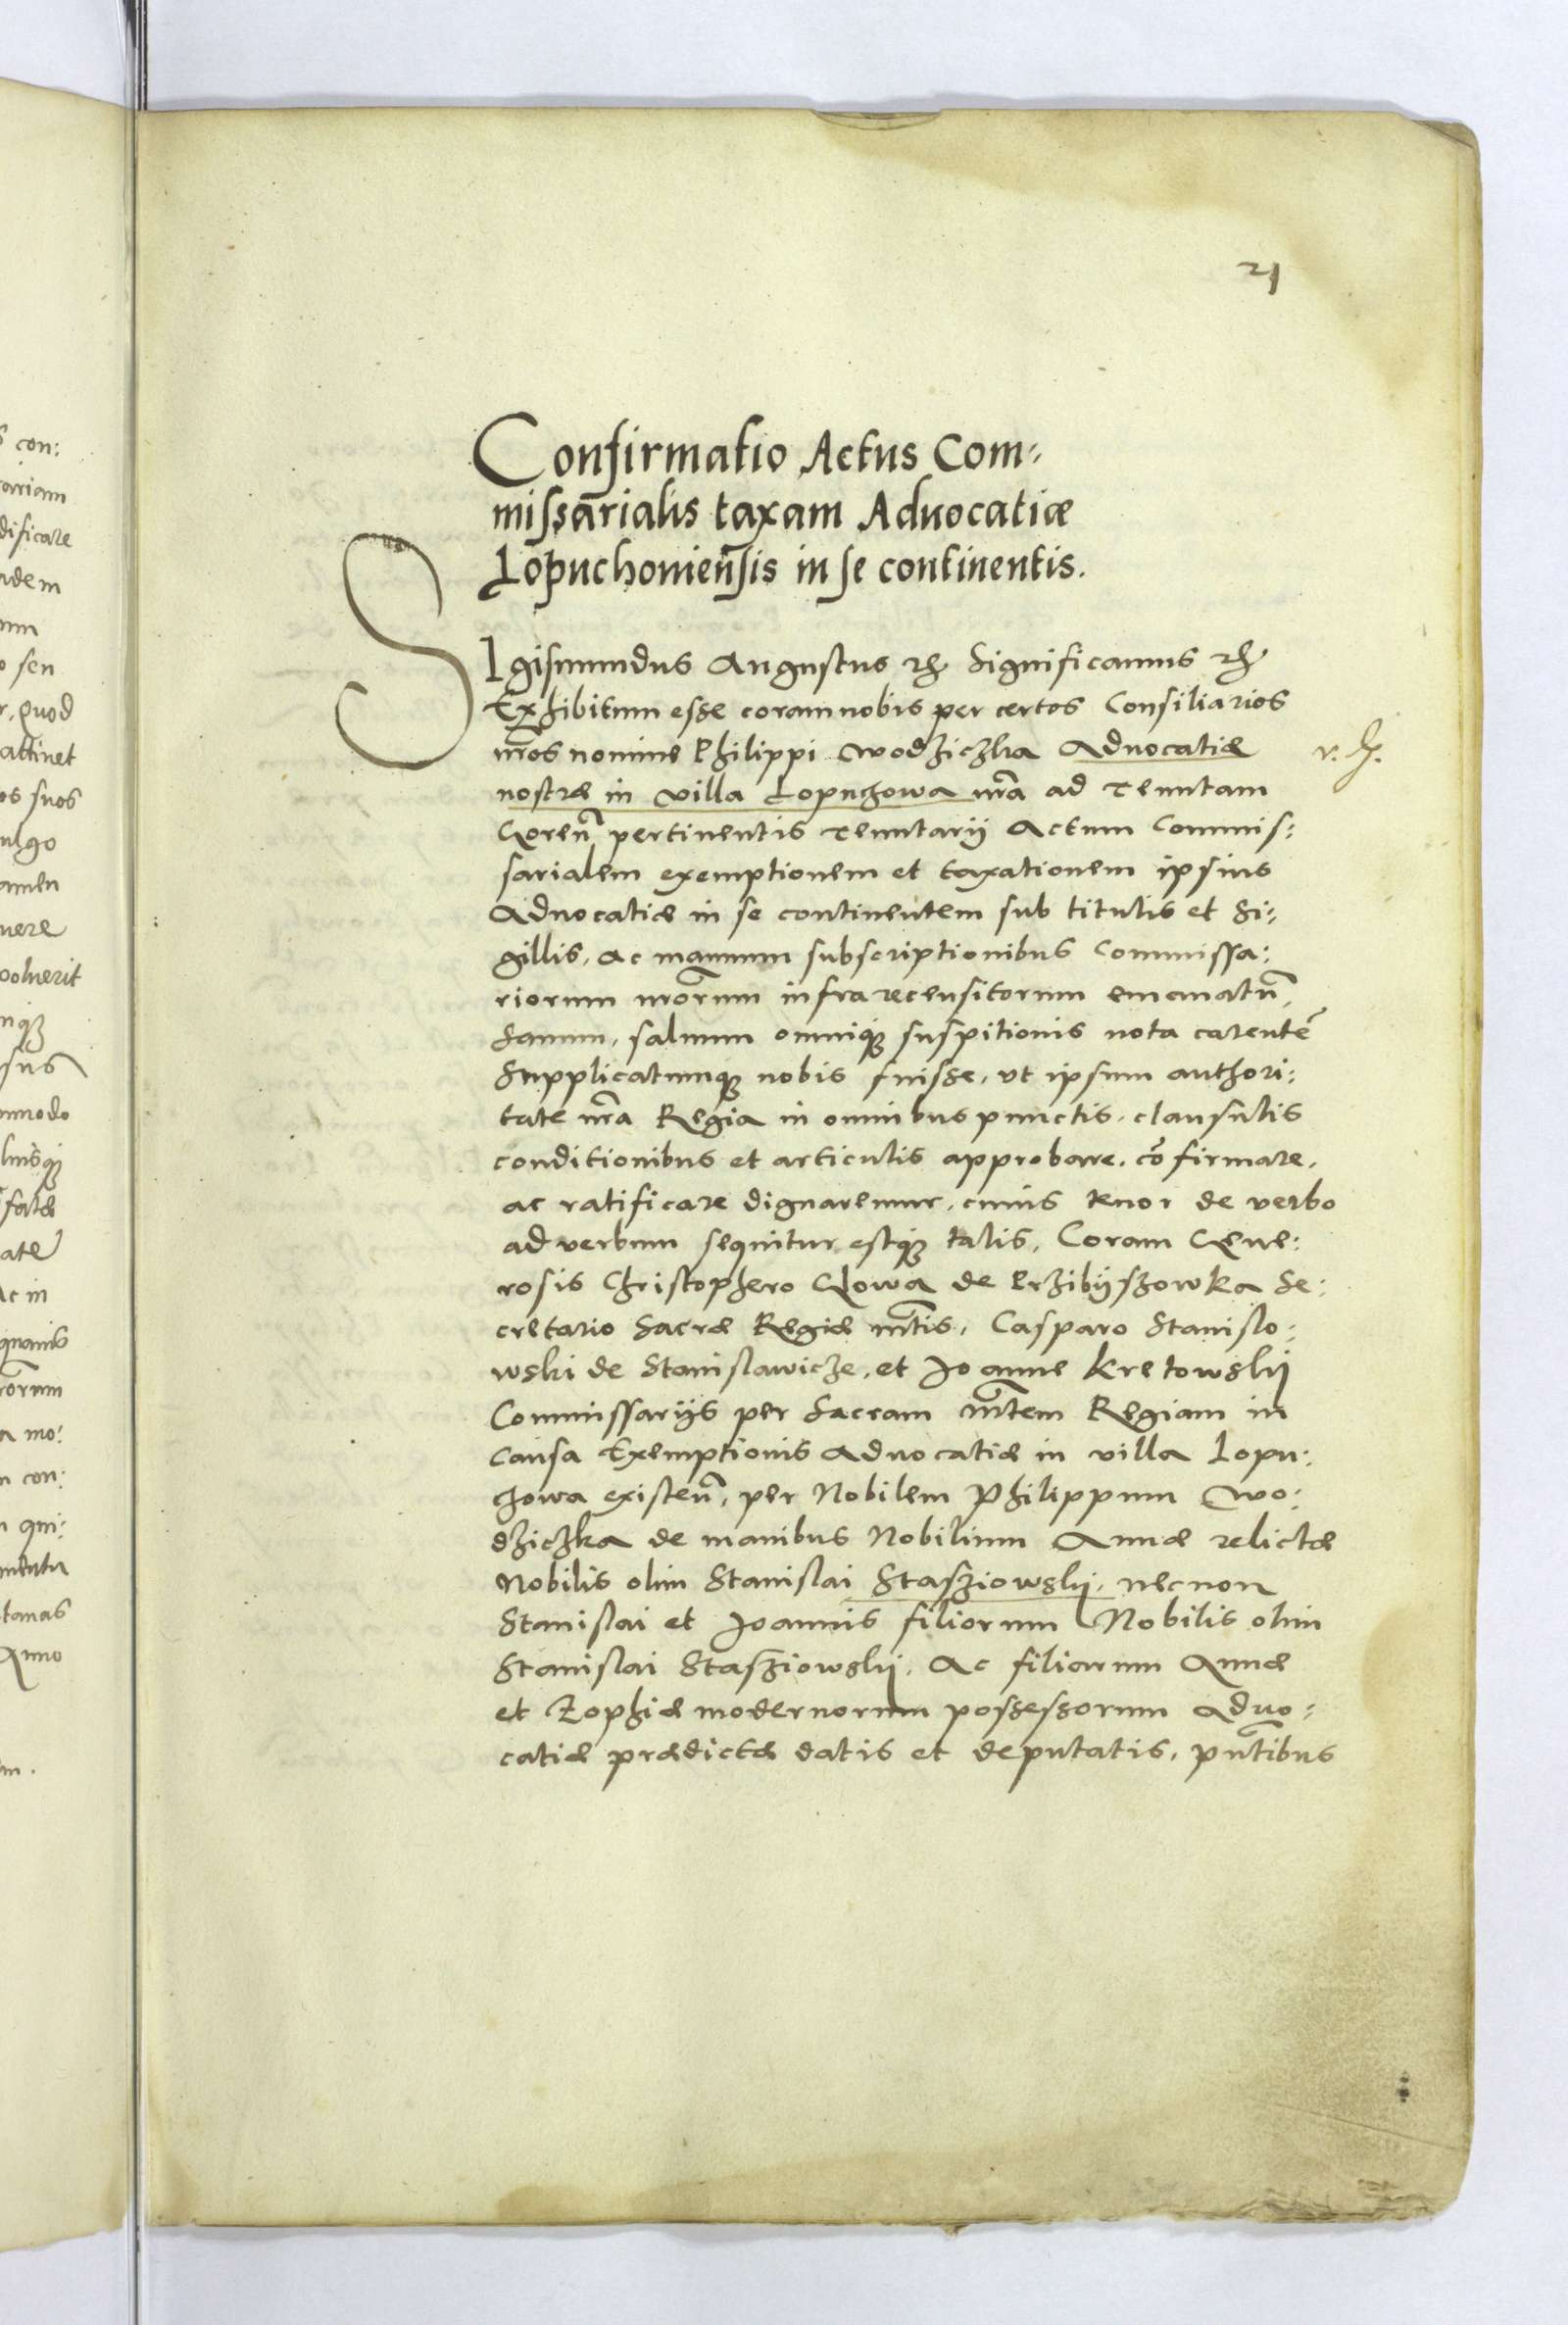 21
Confirmatio Actus Com:
missarialis taxam Advocatiæ
Lopuchoviensis in se continentis.
SIgismundus Augustus etc Significamus etc
Exhibitum esse coram nobis per certos Consiliarios
nr̃os nomine Philippi Wodziczka Advocatiæ
nostræ in villa Lopuchowa nr̃a ad tenutam
Goren̄ pertinentis tenutarij Actum Commis:
sarialem exemptionem et taxationem ipsius
Advocatiæ in se continentem sub titulis et Si:
gillis, ac manuum subscriptionibus Commissa:
riorum nr̃orum infra recensitorum emanatũ,
Sanum, salvum omniq̃ suspitionis nota carentẽ
Supplicatumq̃ nobis fuisse, ut ipsum authori:
tate nr̃a Regia in omnibus punctis, clausulis
conditionibus et articulis approbare, cõfirmare,
ac ratificare dignaremur, cuius tenor de verbo
ad verbum sequitur estq̃ talis, Coram Gene:
rosis Christophero Glowa de Przibijszowka Se:
cretario Sacræ Regiæ Mt̃is, Casparo Stanislo:
wski de Stanislawicze, et Joanne Kretowskij
Commissarijs per Sacram Mt̃em Regiam in
Causa Exemptionis Advocatiæ in villa Lopu:
chowa existen̄, per Nobilem Philippum Wo:
dziczka de manibus Nobilium Annæ relictæ
Nobilis olim Stanislai Stasziowskij, necnon
Stanislai et Joannis filiorum Nobilis olim
Stanislai Stasziowskij, Ac filiarum Annæ
et Zophiæ modernorum possessorum Advo:
catiæ prædictæ datis et deputatis, pñtibus
con:
ariam
dificare
adem
sen
quod
attinet
os suos
ulgo
amen
voluerit
sus
ate
ac in
quamvis
a mo:
n con:
qui:
tanas
Anno